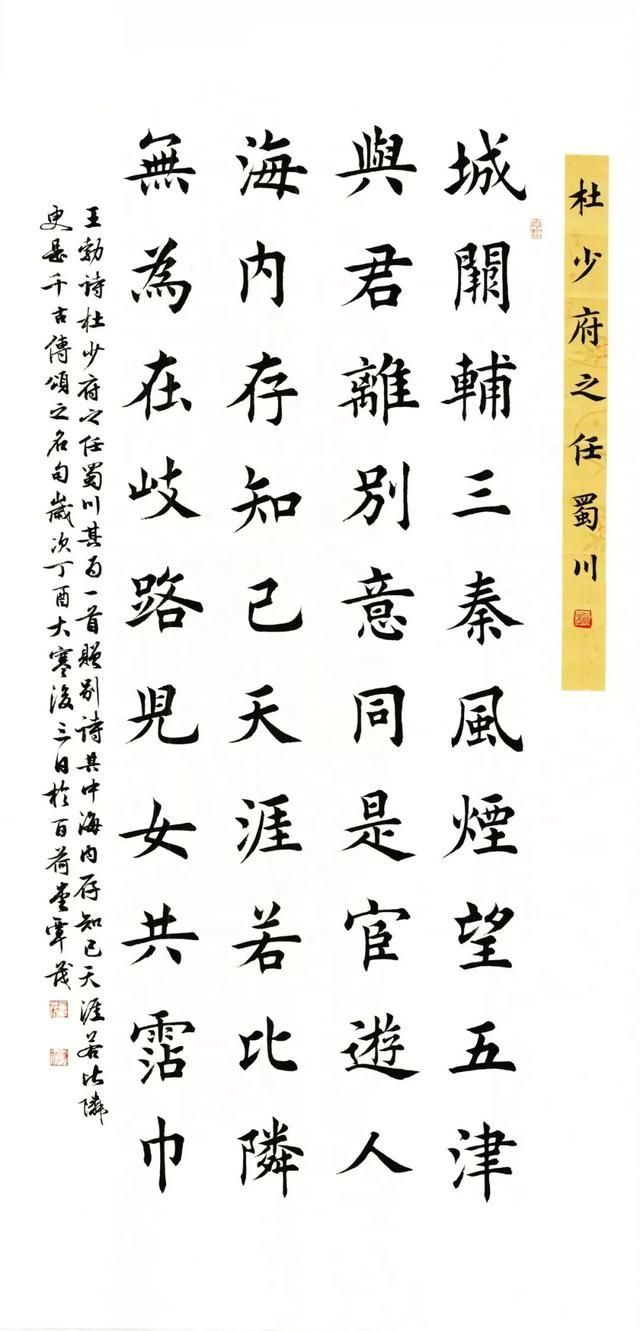 杜少府之任蜀川
城闕輔三秦風煙望五津
與君離別意同是宦遊人
海内存知己天涯若比隣
無為在岐路兒女共霑巾
王勃诗杜少府之任蜀川其为一首贈别诗其中海内存知己天涯若比隣
更是千古傳頌之名句歲次丁酉大寒後三日於百荷堂覃茂